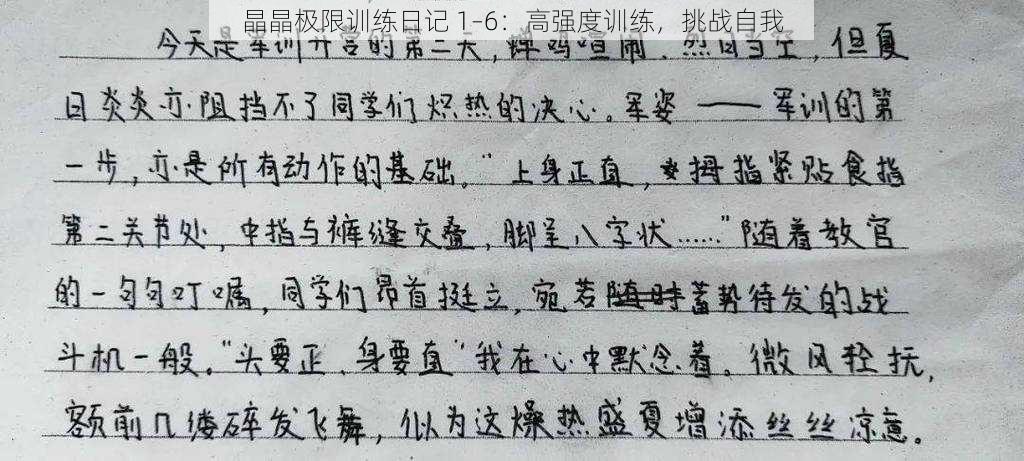 晶晶极限训练日记 1-6：高强度训练，挑战自我
今天是军训开营的第二天，蝉鸣喧闹，烈日当空，但夏
日炎炎亦阻挡不了同学们炽热的决心。军姿——军训的第
一步，亦是所有动作的基础。“上身正直，拇指紧贴食指
第二关节处，中指与裤缝交叠，脚呈八字状……”随着教官
的一句句叮嘱，同学们昂首挺立，宛若蓄势待发的战
斗机一般。“头要正、身要直”我在心中默念着。微风轻抚，
额前几缕碎发飞舞，似为这燥热盛夏增添丝丝凉意。